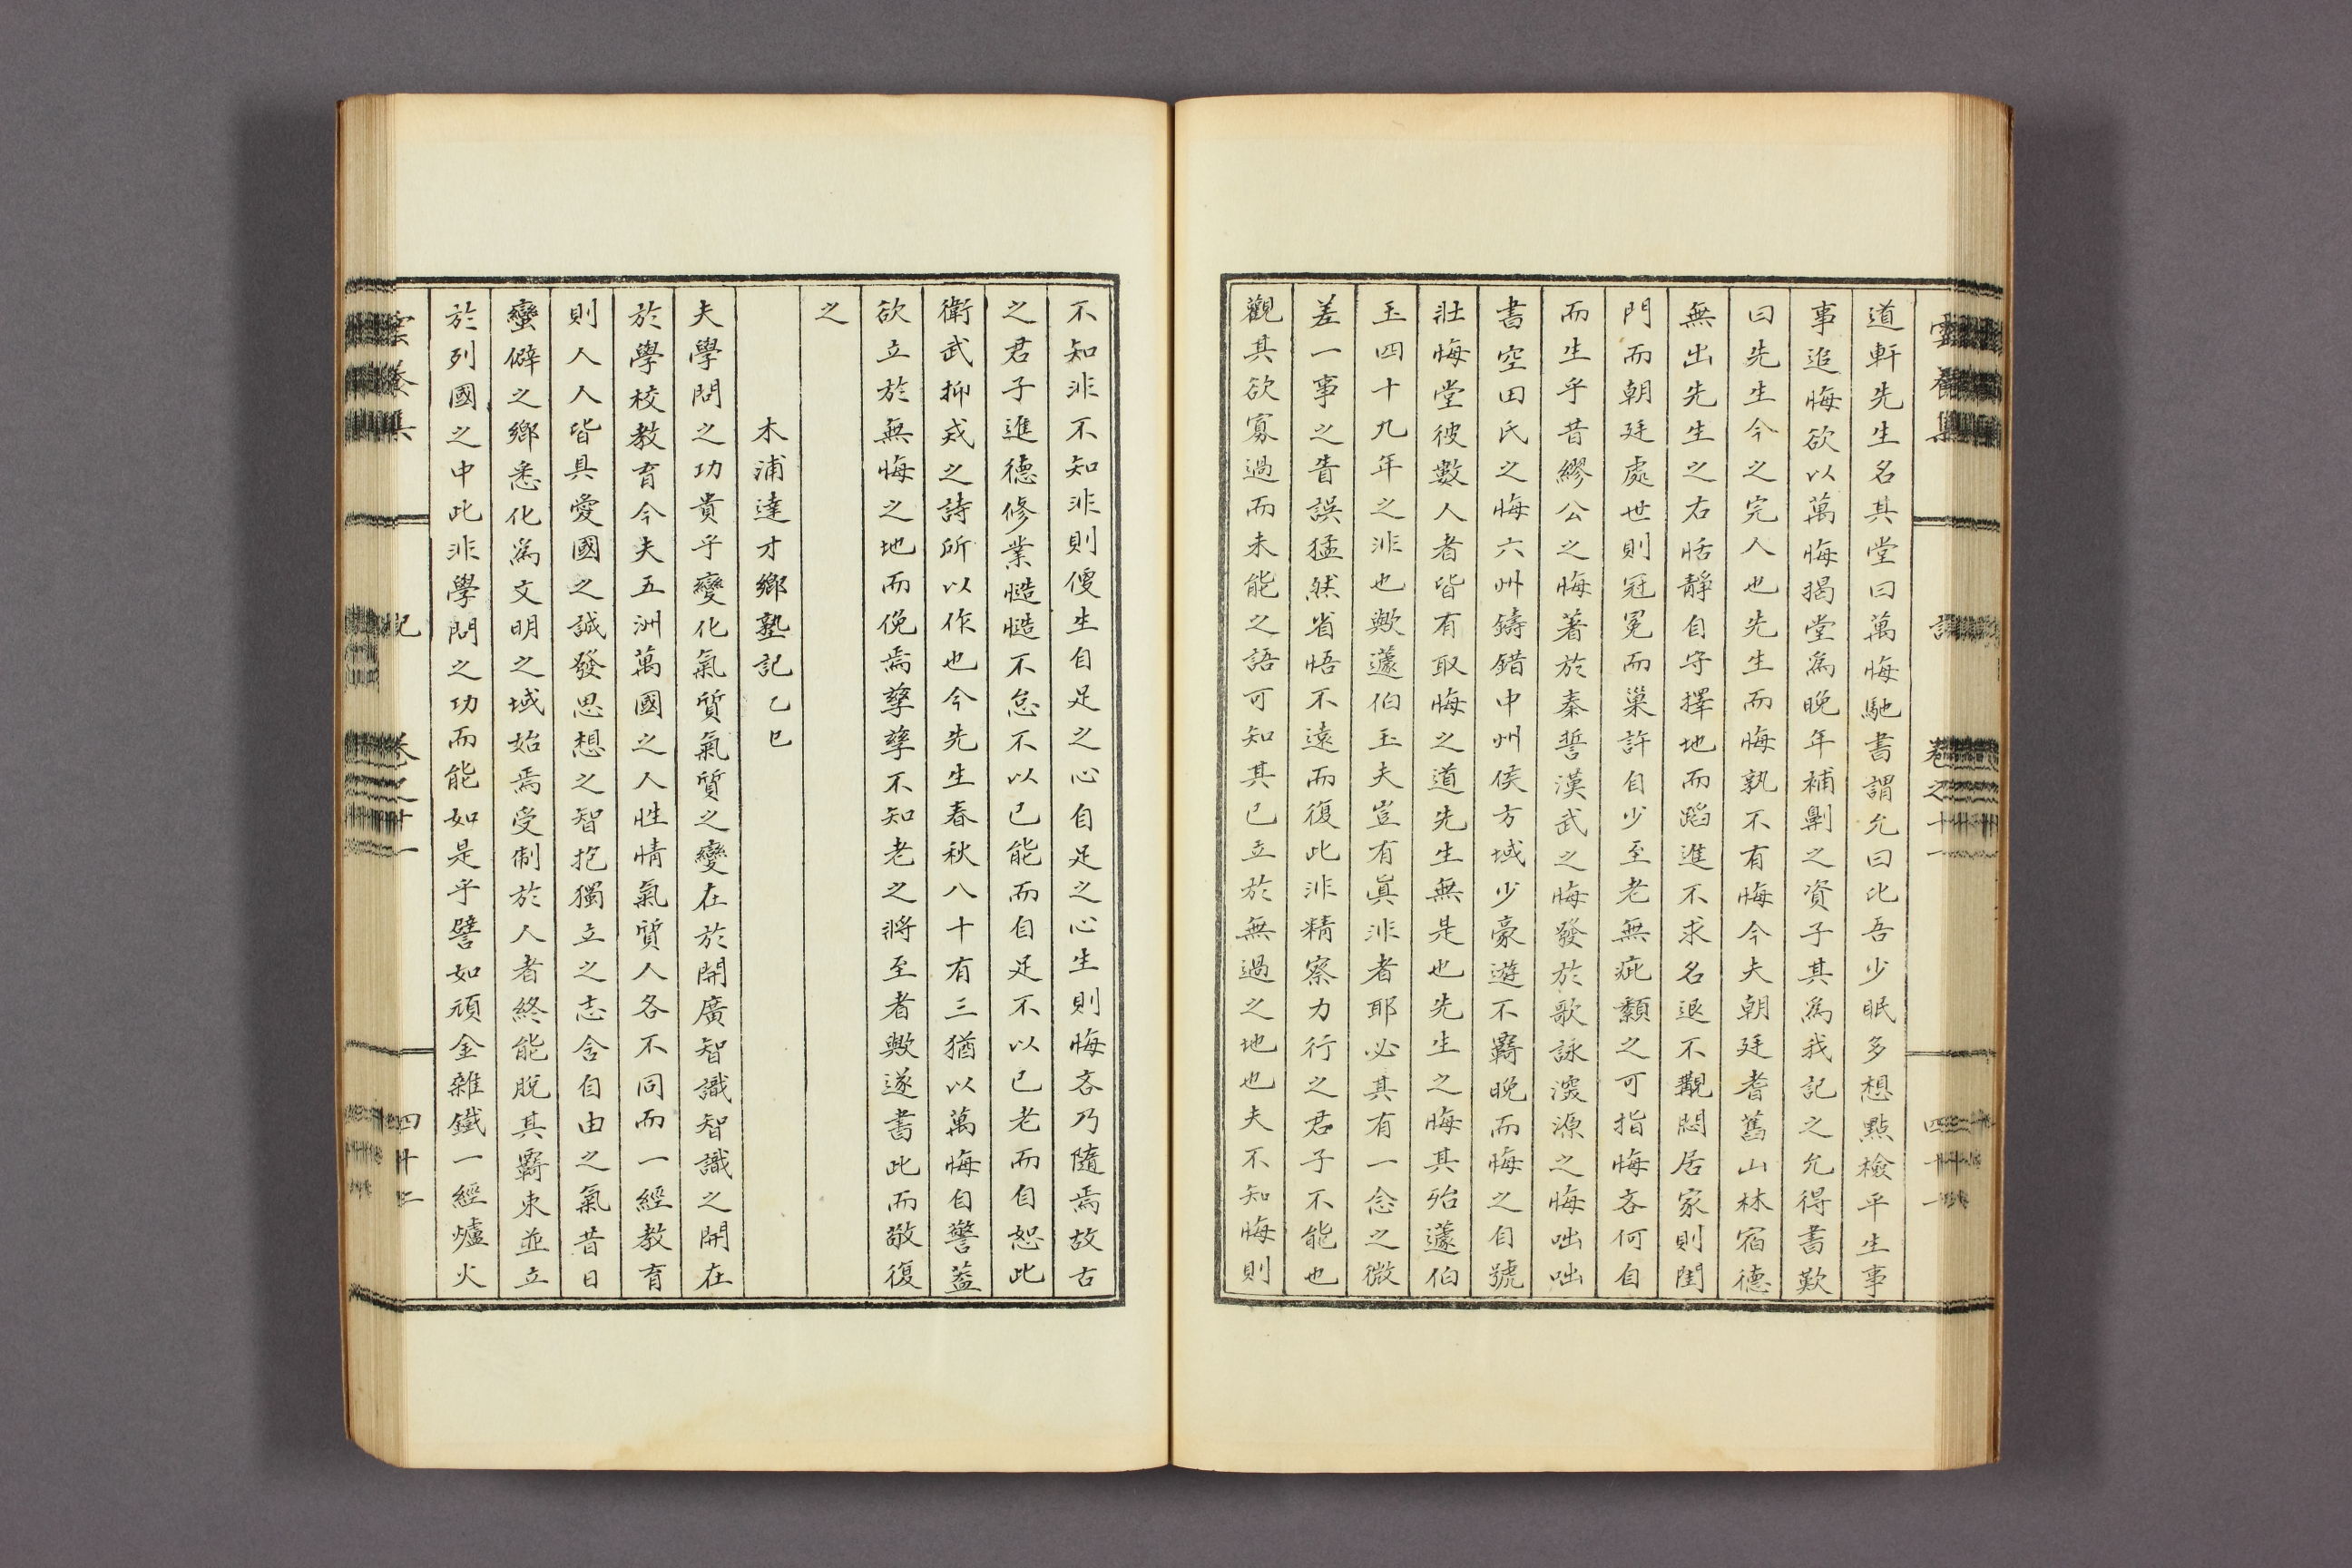 雲養集 記 卷之十一 四十一
道軒先生名其堂曰萬悔馳書謂允曰此吾少眠多想點檢平生事
事追悔欲以萬悔揭堂爲晚年補劓之資子其爲我記之允得書歎
曰先生今之完人也先生而悔孰不有悔今夫朝廷耆舊山林宿德
無出先生之右恬靜自守擇地而蹈進不求名退不覯閔居家則閨
門而朝廷處世則冠冕而巢許自少至老無疵纇之可指悔吝何自
而生乎昔繆公之悔著於秦誓漢武之悔發於歌詠深源之悔咄咄
書空田氏之悔六州鑄錯中州侯方域少豪遊不羈晚而悔之自號
壯悔堂彼數人者皆有取悔之道先生無是也先生之悔其殆蘧伯
玉四十九年之非也歟蘧伯玉夫豈有眞非者耶必其有一念之微
差一事之眚誤猛然省悟不遠而復此非精察力行之君子不能也
觀其欲寡過而未能之語可知其已立於無過之地也夫不知悔則
不知非不知非則傻生自足之心自足之心生則悔吝乃隨焉故古
之君子進德修業慥慥不怠不以已能而自足不以已老而自恕此
衛武抑戒之詩所以作也今先生春秋八十有三猶以萬悔自警蓋
欲立於無悔之地而俛焉孳孳不知老之將至者歟遂書此而敬復
之
木浦達才鄉塾記 乙巳
夫學問之功貴乎變化氣質氣質之變在於開廣智識智識之開在
於學校教育今夫五洲萬國之人性情氣質人各不同而一經教育
則人人皆具愛國之誠發思想之智抱獨立之志含自由之氣昔日
蠻僻之鄉悉化爲文明之域始焉受制於人者終能脫其羈束並立
於列國之中此非學問之功而能如是乎譬如頑金雜鐵一經爐火
雲養集 記 卷之十一 四十二